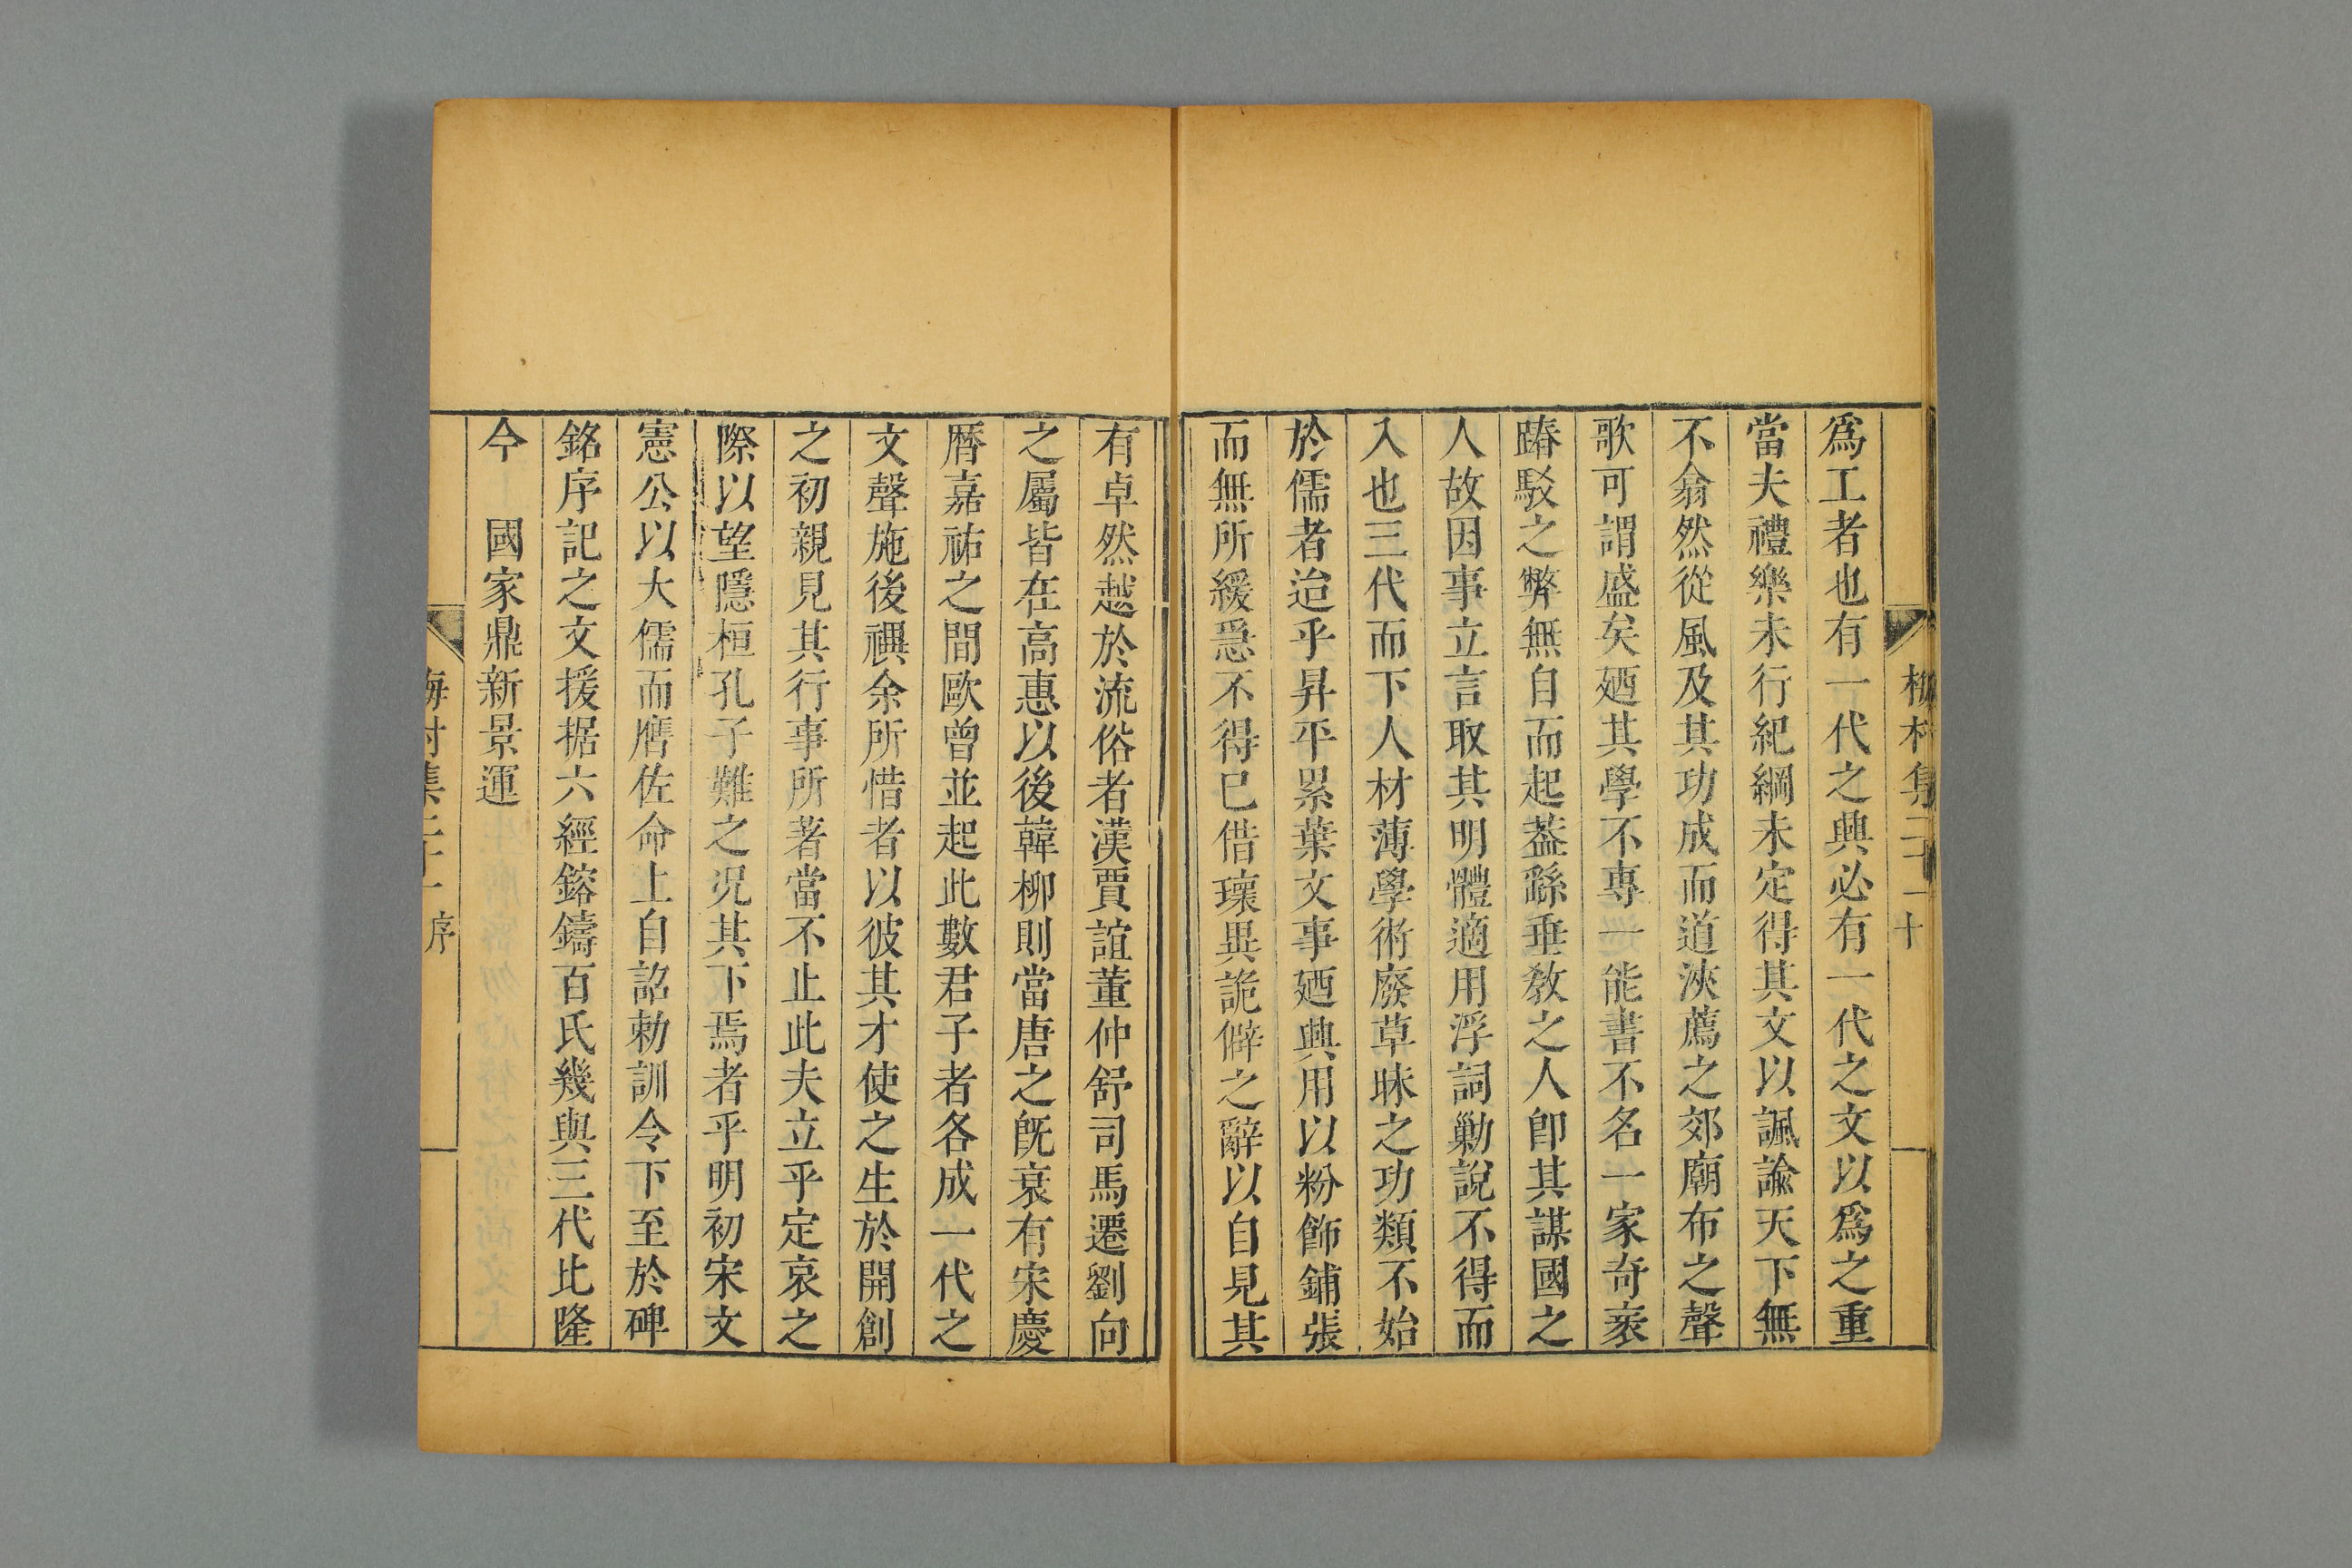 梅村集二十一 十
爲工者也有一代之興必有一代之文以爲之重
當夫禮樂未行紀綱未定得其文以諷諭天下無
不翕然從風及其功成而道浹薦之郊廟布之聲
歌可謂盛矣廼其學不專一能書不名一家奇袤
踳駁之弊無自而起葢繇垂教之人卽其謀國之
人故因事立言取其明體適用浮詞勦說不得而
入也三代而下人材薄學術廢草昧之功類不始
於儒者迨乎昇平累葉文事廼興用以粉飾鋪張
而無所緩急不得已借瓌異詭僻之辭以自見其
有卓然越於流俗者漢賈誼董仲舒司馬遷劉向
之屬皆在高惠以後韓柳則當唐之旣衰有宋慶
曆嘉祐之間歐曾並起此數君子者各成一代之
文聲施後禩余所惜者以彼其才使之生於開創
之初親見其行事所著當不止此夫立乎定哀之
際以望隱桓孔子難之况其下焉者乎明初宋文
憲公以大儒而膺佐命上自詔勅訓令下至於碑
銘序記之文援据六經鎔鑄百氏幾與三代比隆
今　國家鼎新景運
梅村集二十一 序